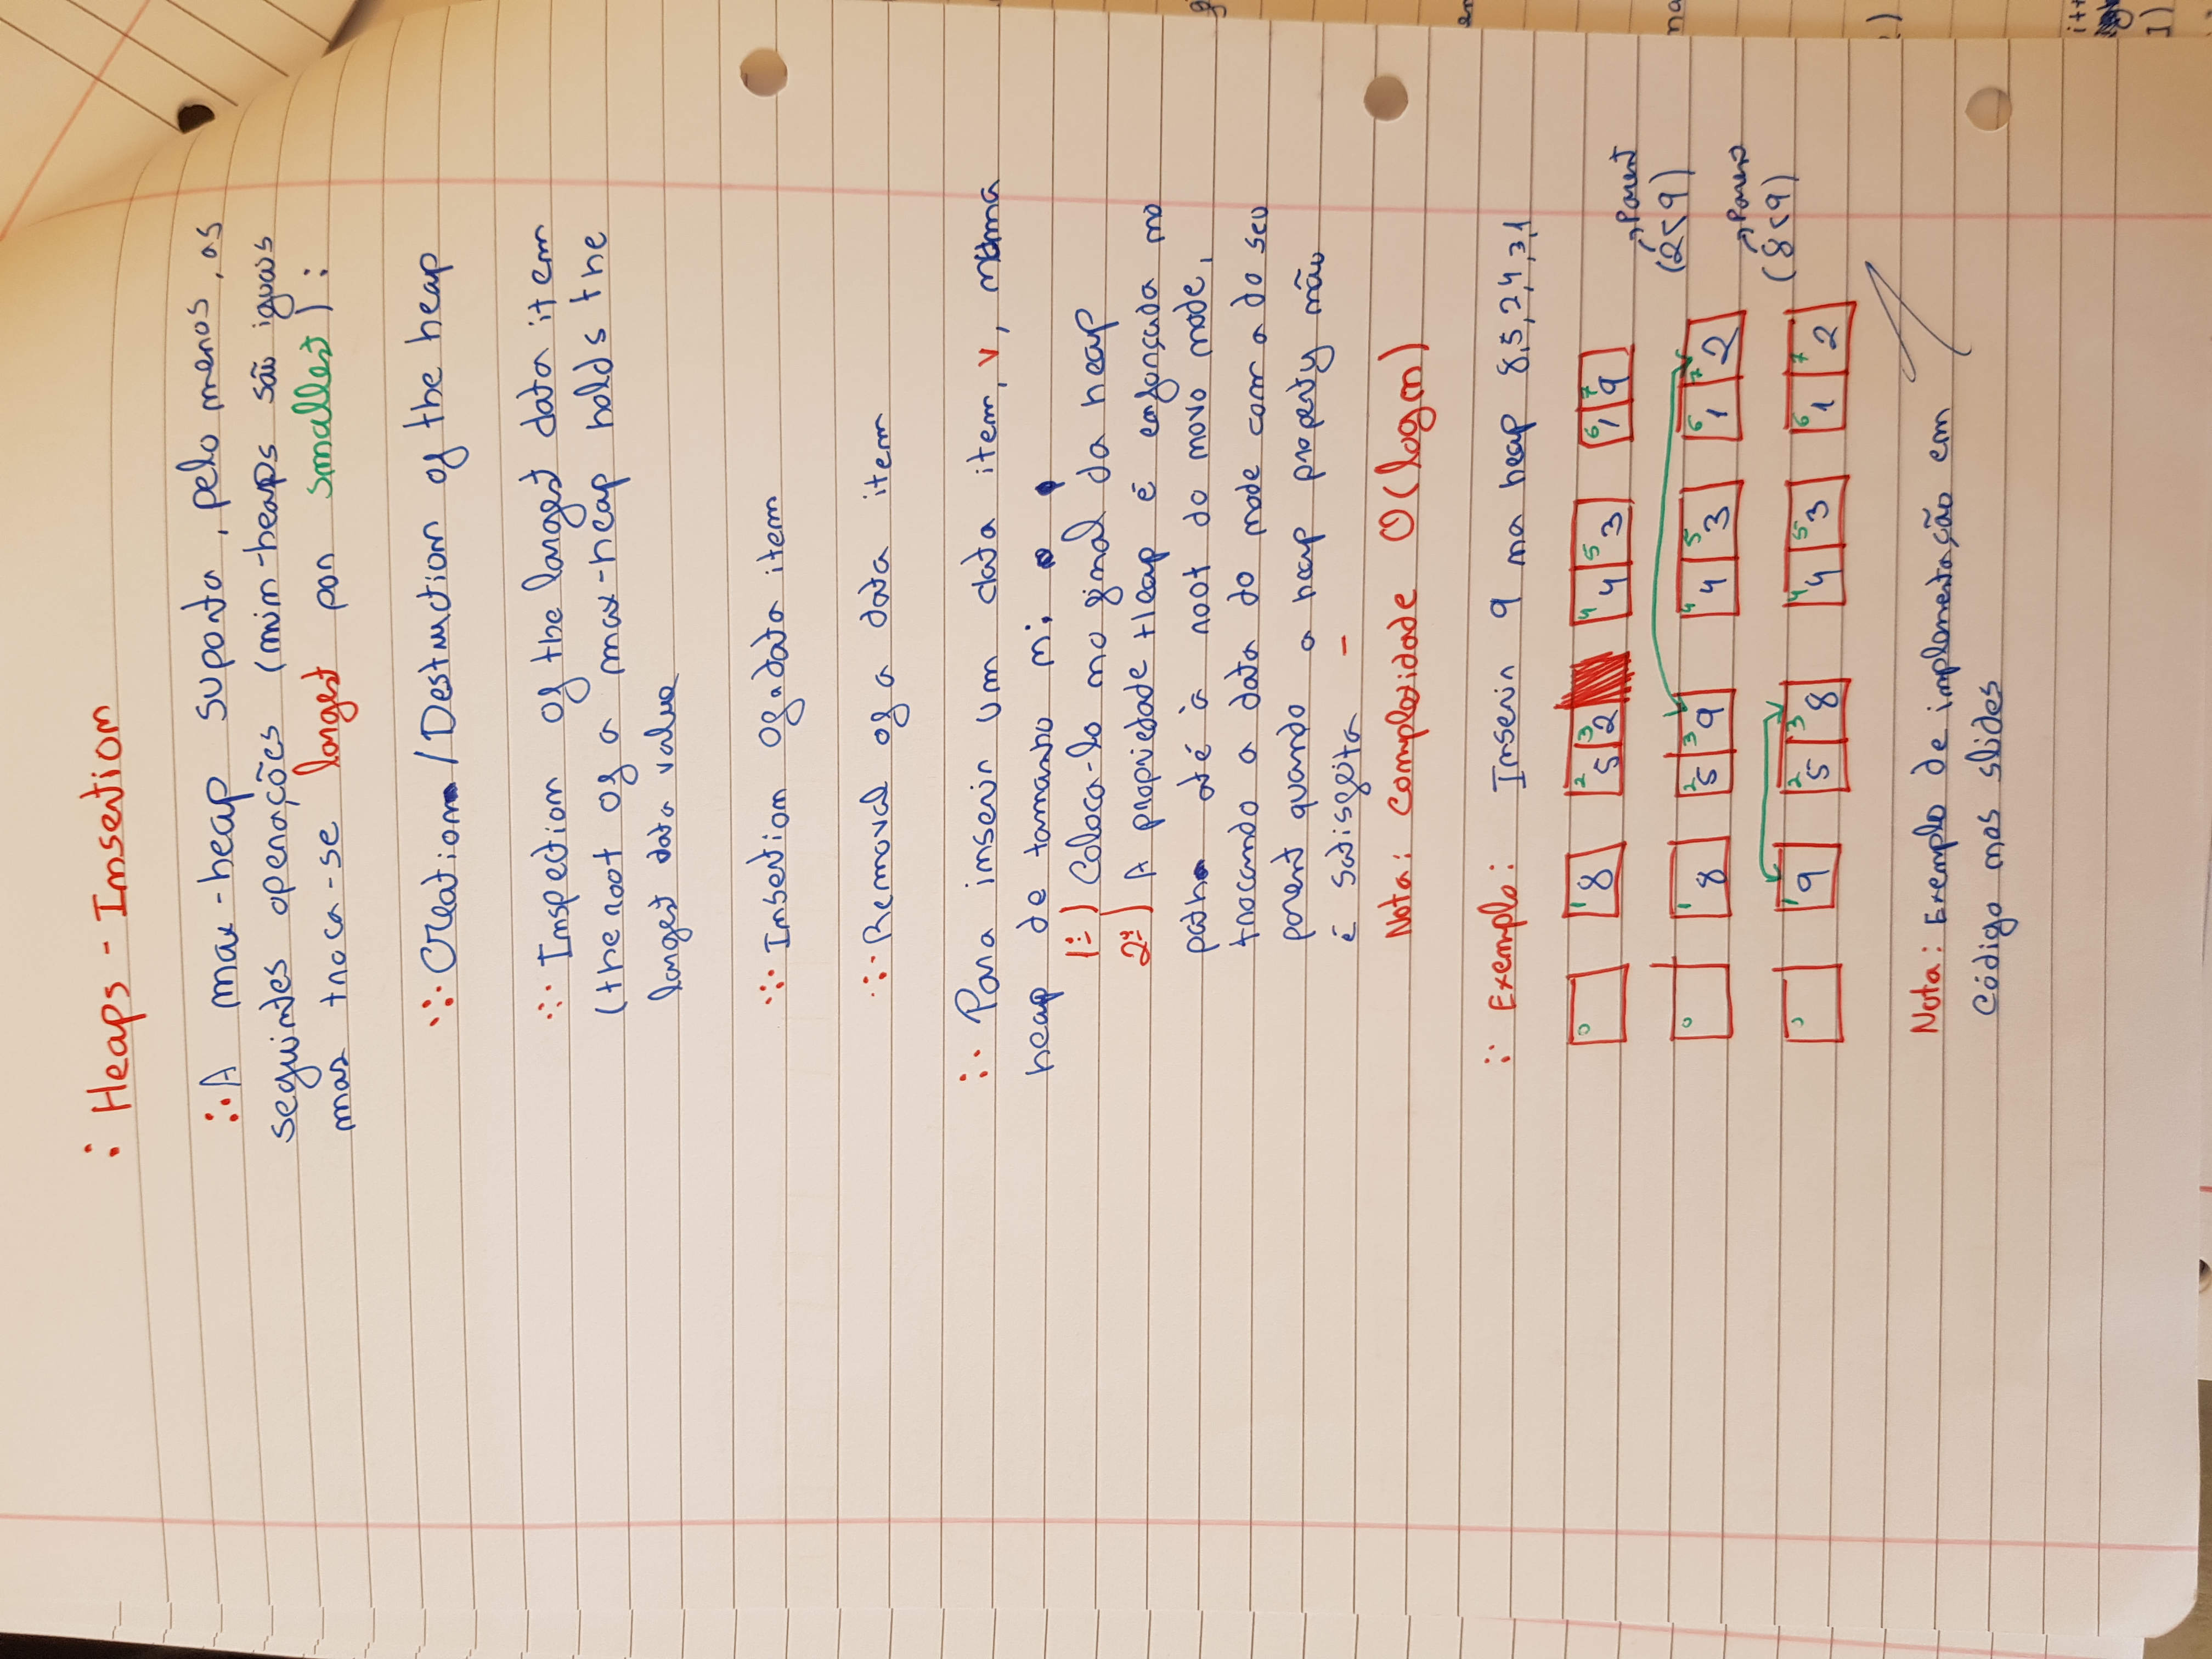 Heaps - Insertion
A max-heap suporta, pelo menos, as
seguintes operações (min-heaps são iguais
mas troca-se largest por smallest):
Creation/Destruction of the heap
Inspection of the largest data item
(the root of a max-heap holds the
largest data value
Insertion of a data item
Removal of a data item
Para inserir um data item, v, numa
heap de tamanho n:
1º) Coloca-lo no final da heap
2º) A propriedade Heap é enforçada no
path até à root do novo node,
trocando a data do node com a do seu
parent quando a heap property não
é satisfeita
Nota: Complexidade O(log n)
Exemplo: Inserir 9 na heap 8,5,2,4,3,1
0 1 8 2 5 3 2 4 4 5 3 6 1 7 9
Parent
0 1 8 2 5 3 9 4 4 5 3 6 1 7 2 (2<9)
Parent
0 1 9 2 5 3 8 4 4 5 3 6 1 7 2 (8<9)
Nota: Exemplo de implementação em
código nos slides